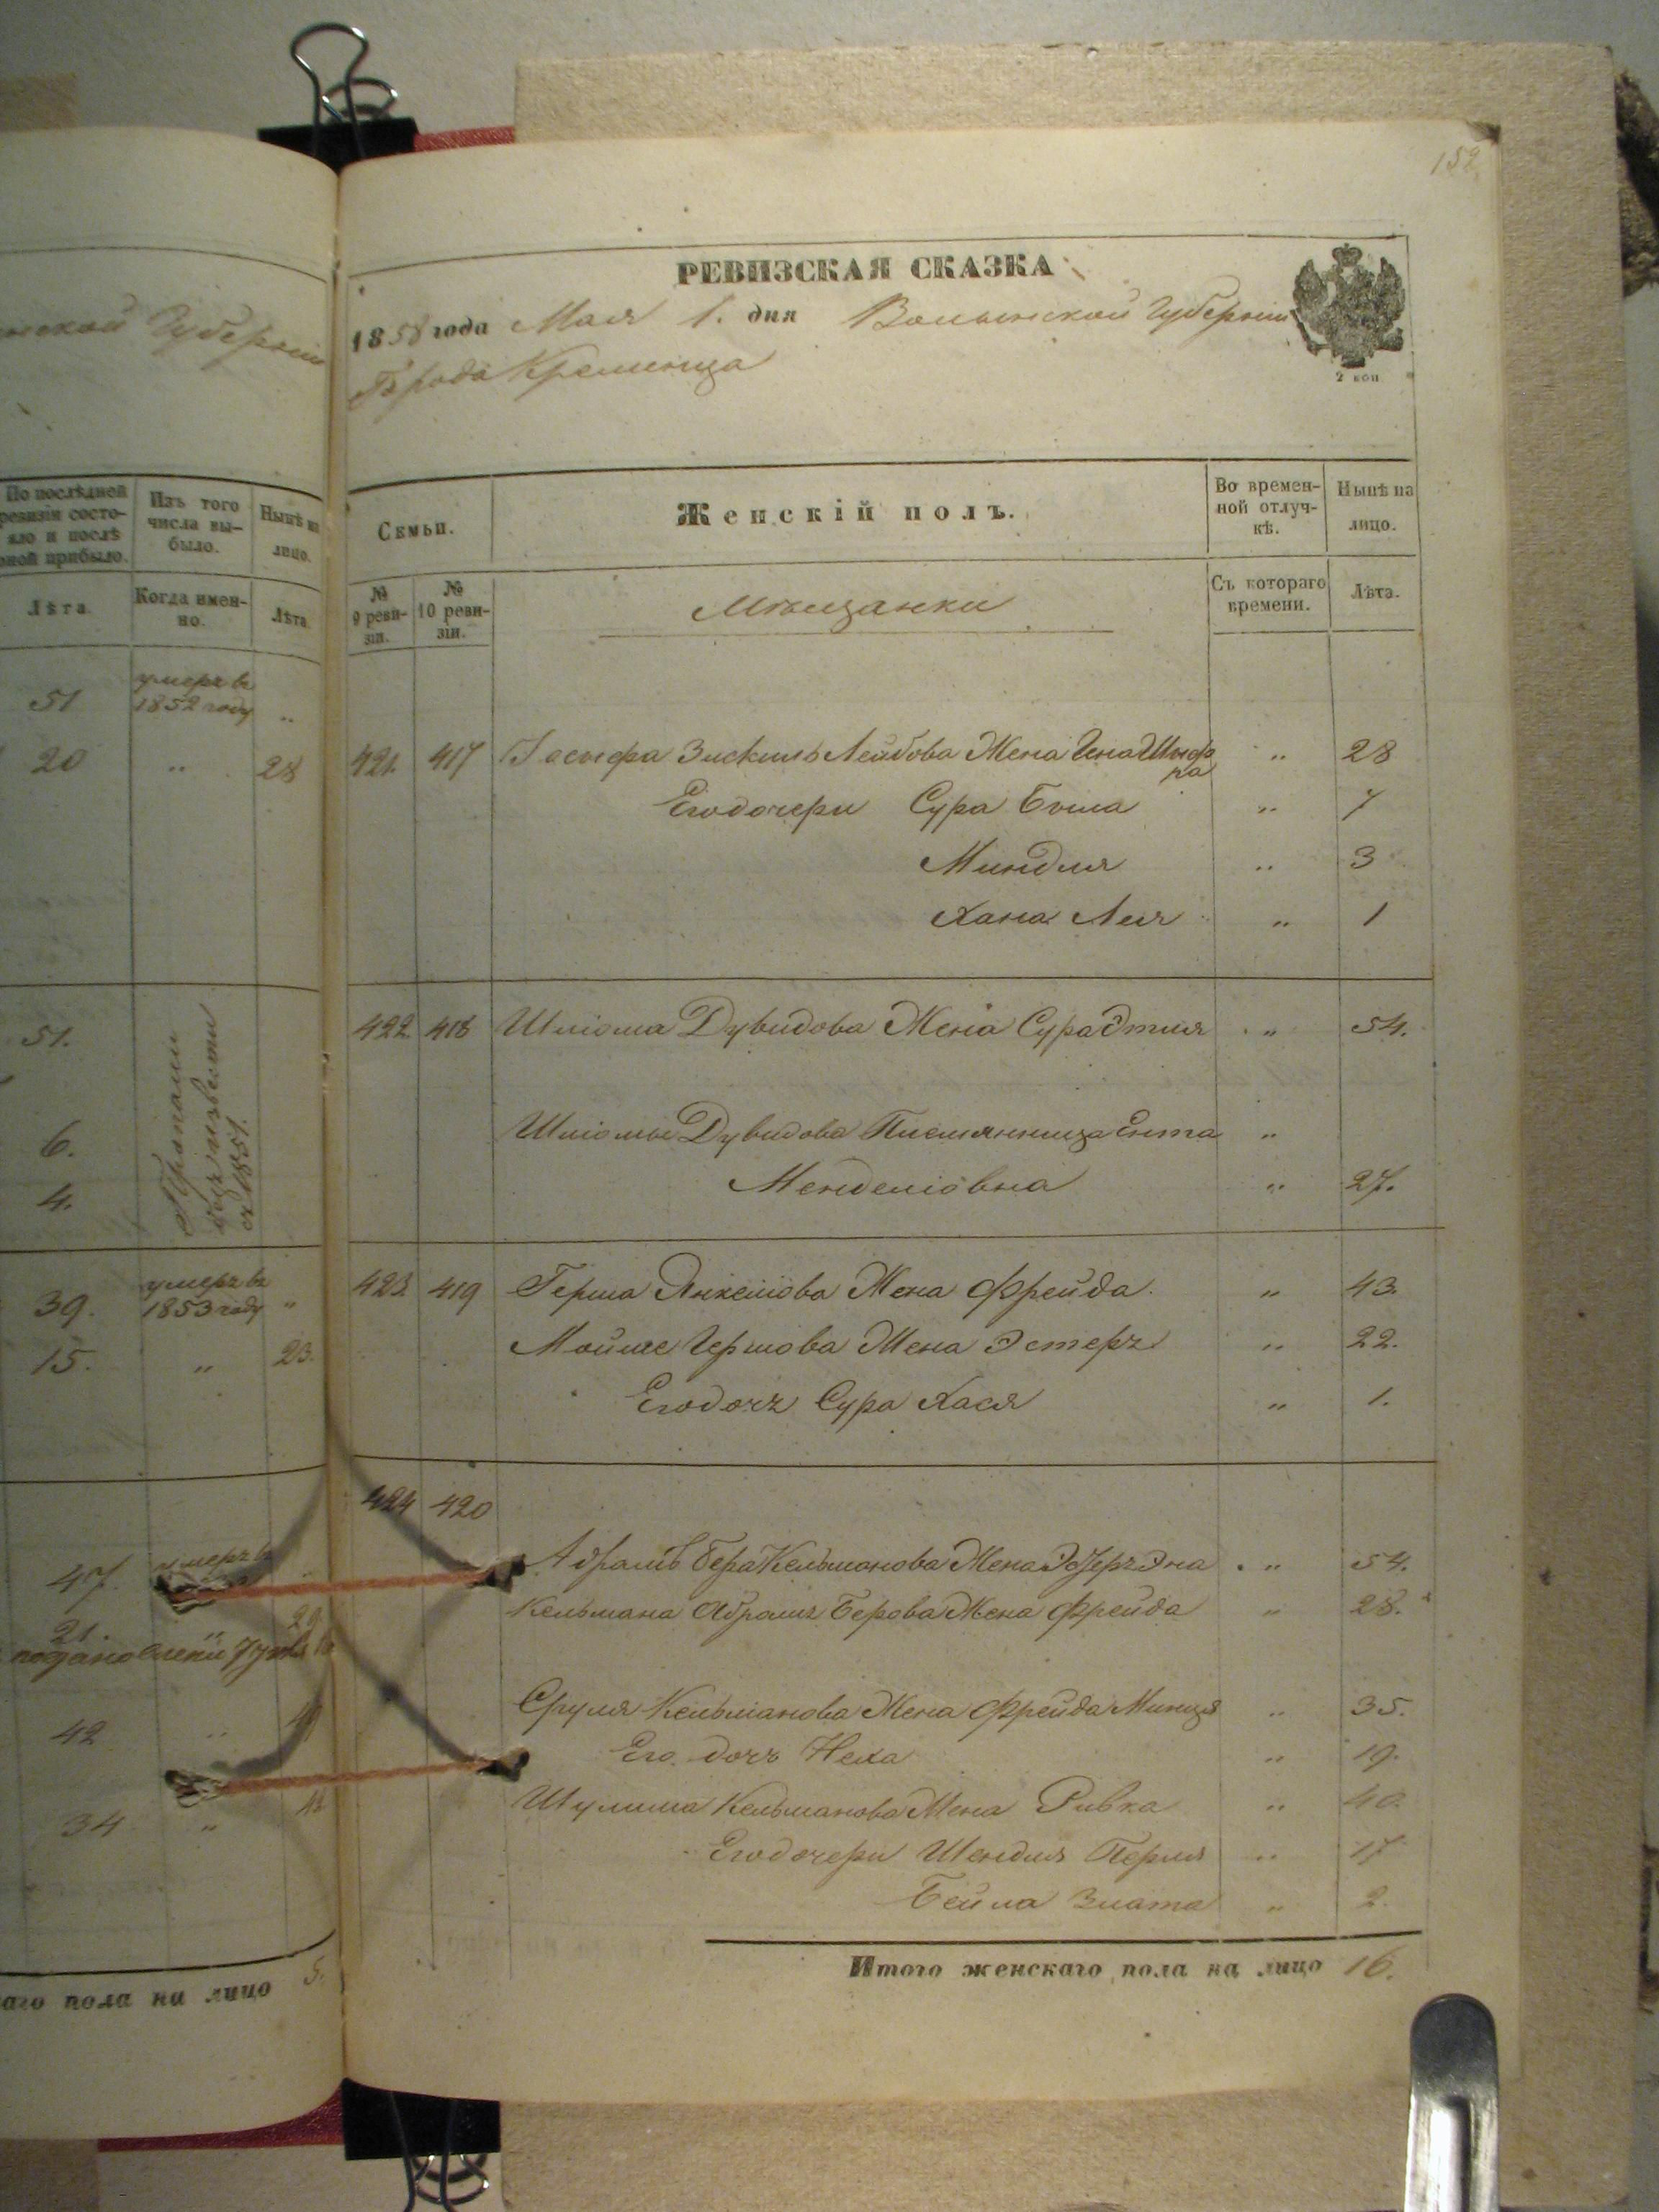 152
РЕВИЗСКАЯ СКАЗКА
1858 года Мая 1. дня Волынской Губерніи
Города Кременца
2 коп
нской Губерніи
По послѣдней ревизіи состо-
яло и послѣ
оной прибыло.
Изъ того
числа вы-
было.
Нынѣ на
лицо.
Лѣта
Когда имен-
но.
Лѣта
Семьи.
Женскій полъ.
Во времен-
ной отлуч-
кѣ.
Нынѣ на
лицо.
№
9 реви-
зіи.
№
10 реви-
зіи.
Мѣщанки
Съ котораго
времени.
Лѣта.
51 умеръ въ
1852 году „
20 „ 28
421. 417 Іосифа Зискинь Лейбова Жена Гена Шиф
ра „ 28
Его дочери Сура Бейла „ 7
Миндля „ 3
Хана Лея „ 1
51.
6.
4.
безъ извѣстн
съ 1851.
422. 418 Шліома Дувидова Жена Сура Этля „ 54.
Шліомы Дувидова Племянница Ента „
Менделіовна „ 27.
39. умеръ въ
1853 году „
15. „ 23.
423. 419 Герша Янкеліова Жена Фрейда. „ 43.
Мойше Гершова Жена Эстеръ „ 22.
Его дочь Сура Хася „ 1.
424 420
47. умеръ въ
21. „ 29
42 „
34 „
Абрамъ Бера Кельманова Жена „ 54.
Кельмана Абрамъ Берова Жена Фрейда „ 28.
Сруля Кельманова Жена Фрейда Минця „ 35.
Его дочь Неха „ 19.
Шулима Кельманова Жена Ривка „ 40.
Его дочери Шендля Перля „ 17
Бейла Злата „ 2.
Итого женскаго пола на лицо 16.
аго пола на лицо 5.